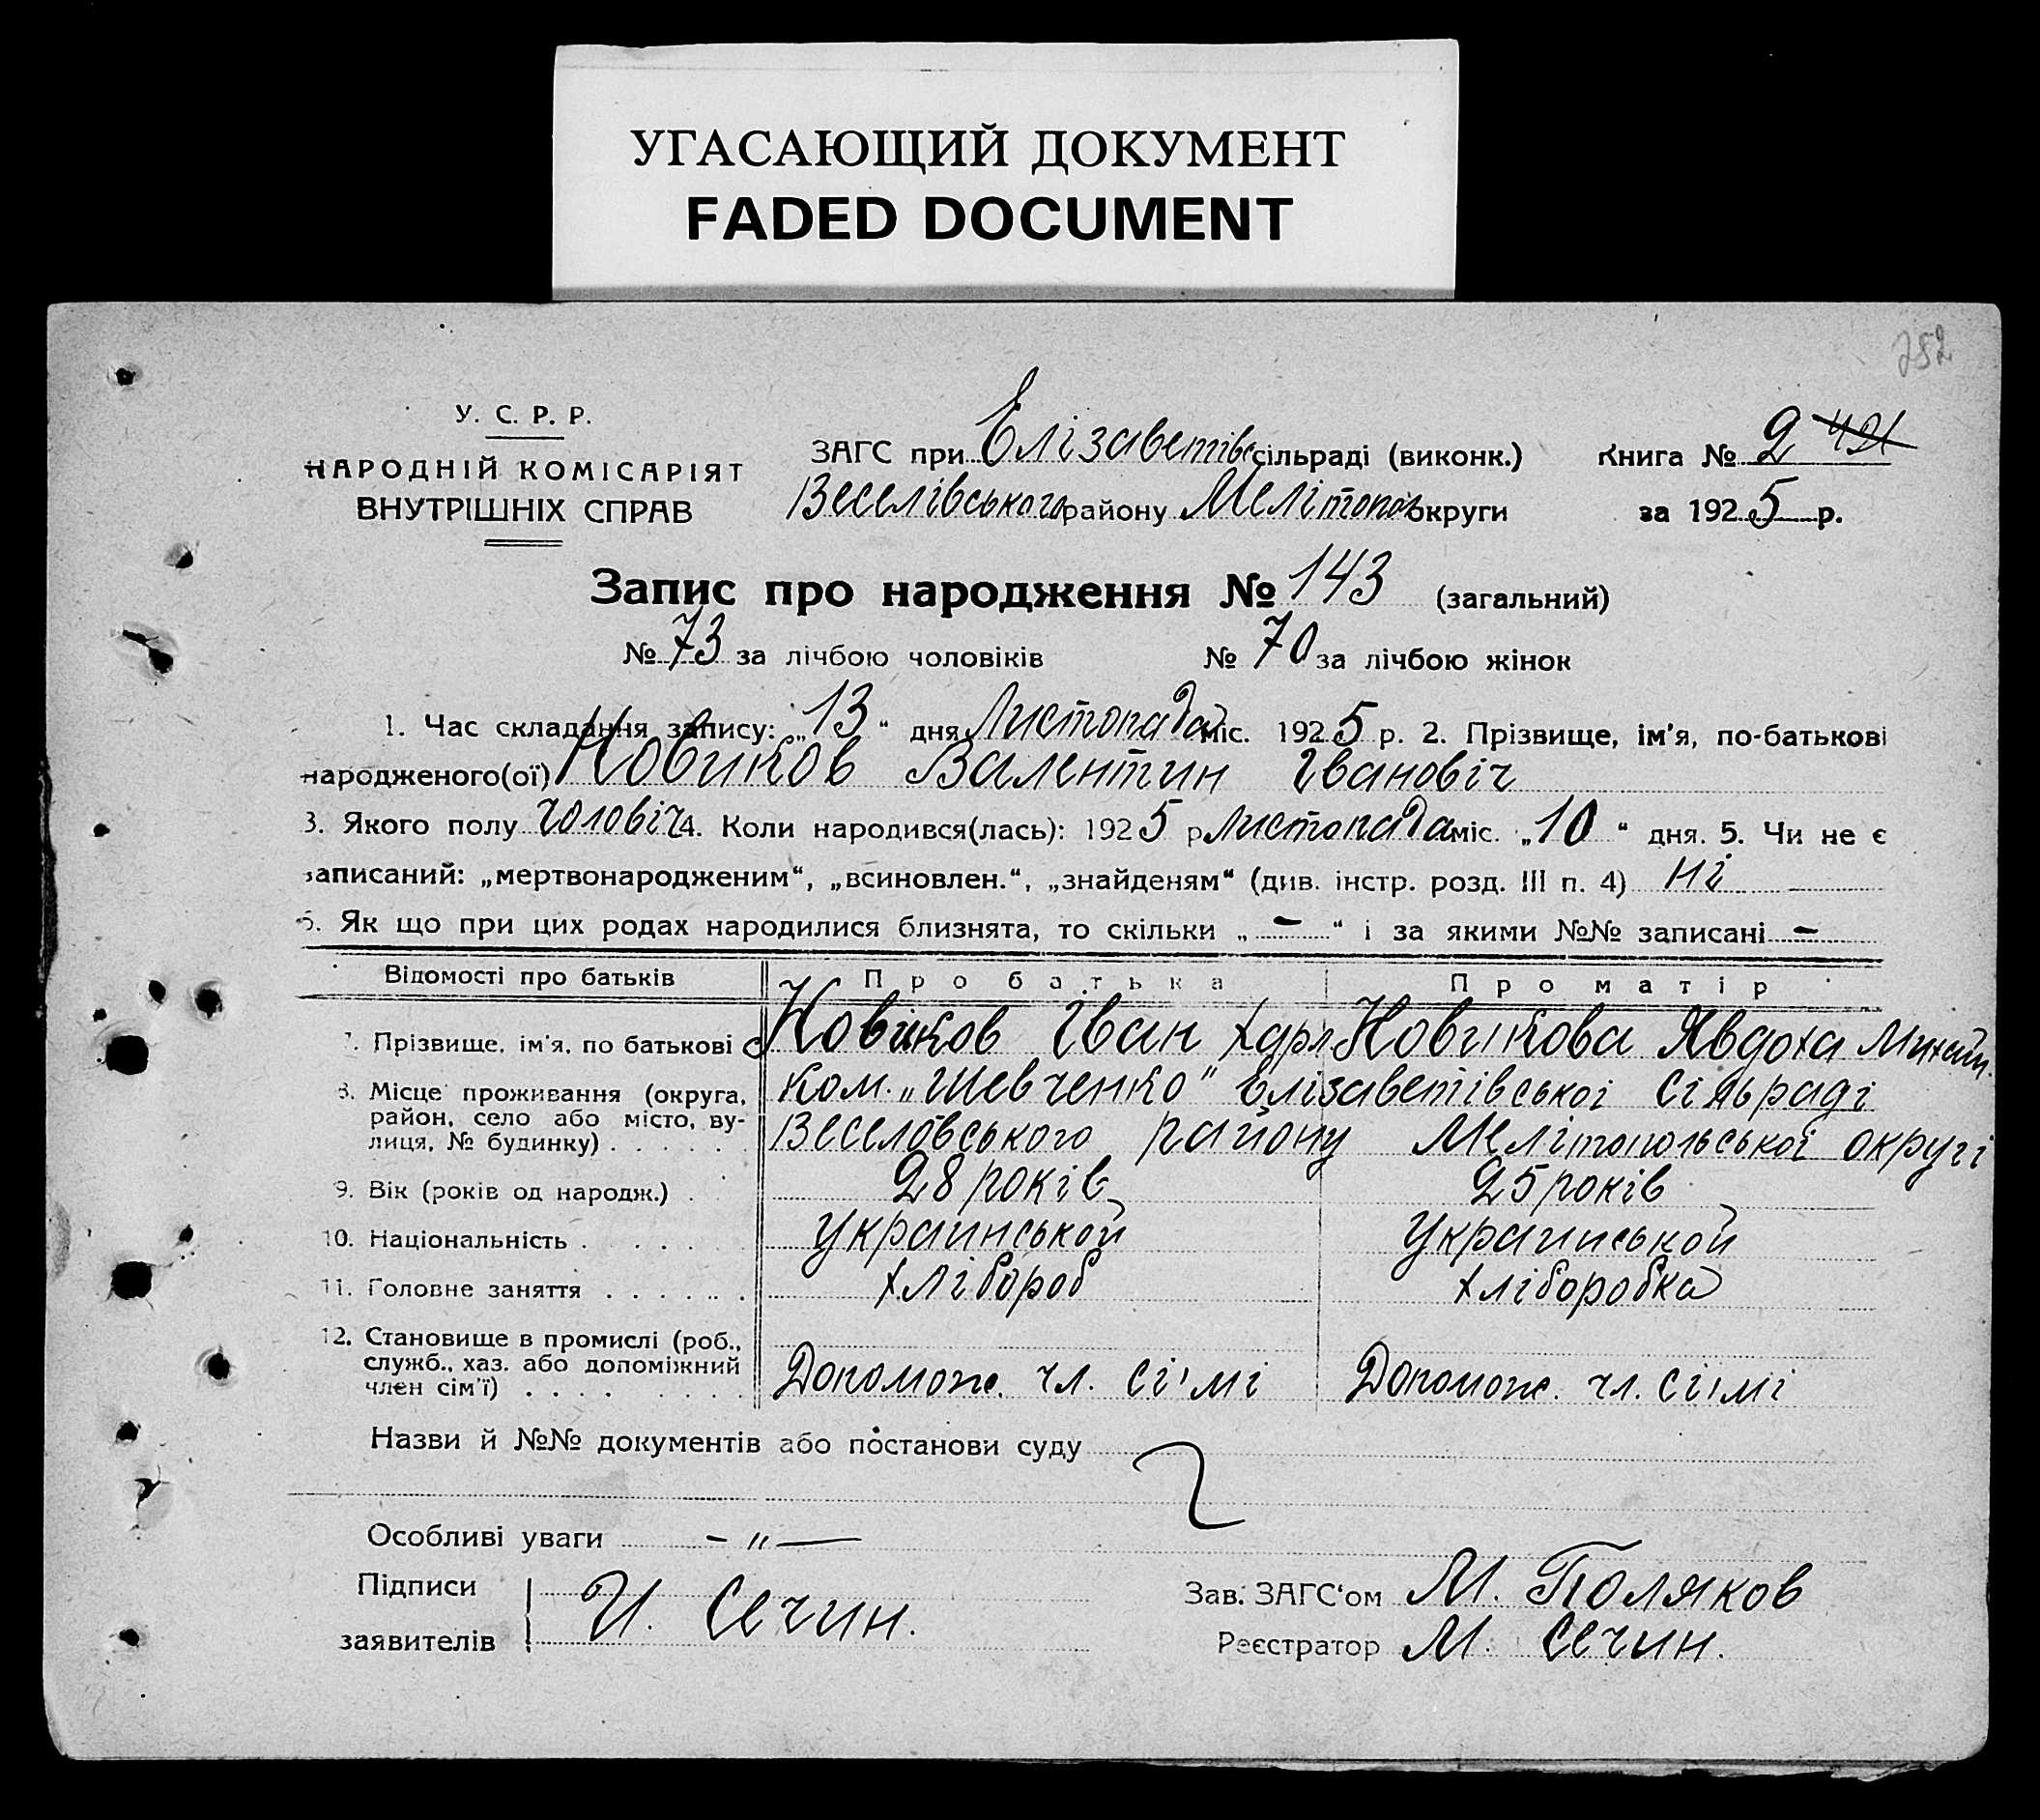 УГАСАЮЩИЙ ДОКУМЕНТ
FADED DOCUMENT
252
У. С. Р. Р.
НАРОДНІЙ КОМІСАРІЯТ
ВНУТРІШНІХ СПРАВ
ЗАГС при Елізаветівс сільраді (виконк.) Книга № 2 421
Веселівського району Мелітопол округи за 1925 р.
Запис про народження № 143 (загальний)
№ 73 за лічбою чоловіків № 70 за лічбою жінок
1. Час складання запису: „13“ дня Листопада міс. 1925 р. 2. Прізвище, ім'я, по-батькові
народженого(ої) Новиков Валентин Івановіч
3. Якого полу чоловіч 4. Коли народився(лась): 1925 р Листопада міс. „10“ дня. 5. Чи не є
записаний: „мертвонародженим“, „всиновлен.“, „знайденям“ (див. інстр. розд. III п. 4) ні
6. Як що при цих родах народилися близнята, то скільки „ — “ і за якими №№ записані —
Відомості про батьків Про батька Про матір
7. Прізвище, ім'я, по батькові Новиков Іван Харл Новикова Явдоха Михайл.
8. Місце проживання (округа, район, село або місто, вулиця, № будинку) . . . . . . Ком. „Шевченко“ Елізаветівської сільраді
Веселовського району Мелітопольської округі
9. Вік (років од народж.) . 28 років 25 років
10. Національність . . . . . . Украинськой Украинськой
11. Головне заняття . . . . . . . Хлібороб Хліборобка
12. Становище в промислі (роб., служб., хаз. або допоміжний член сім'ї) . . . . . . . . Допомож. чл. сі'мі Допомож. чл. сі'мі
Назви й №№ документів або постанови суду
Особливі уваги — „ —
Підписи
заявителів И. Сечин.
Зав. ЗАГС'ом М. Поляков
Реєстратор М. Сечин.